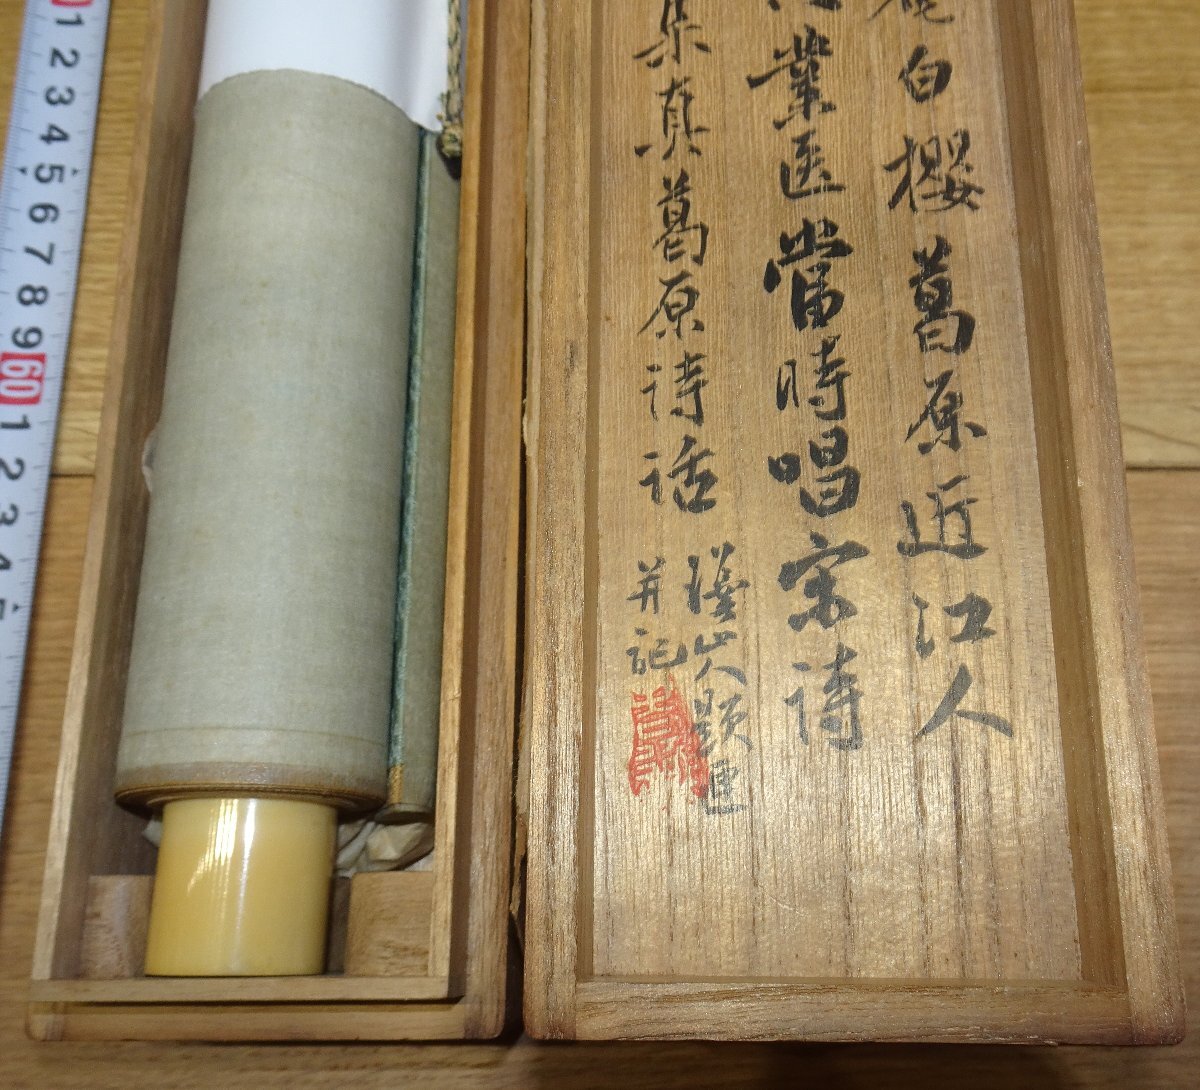 白櫻葛原近江人
業医當時唱宋詩
集真葛原詩話
漢山人題
并記
1 2 3 4 5 6 7 8 9 60 1 2 3 4 5